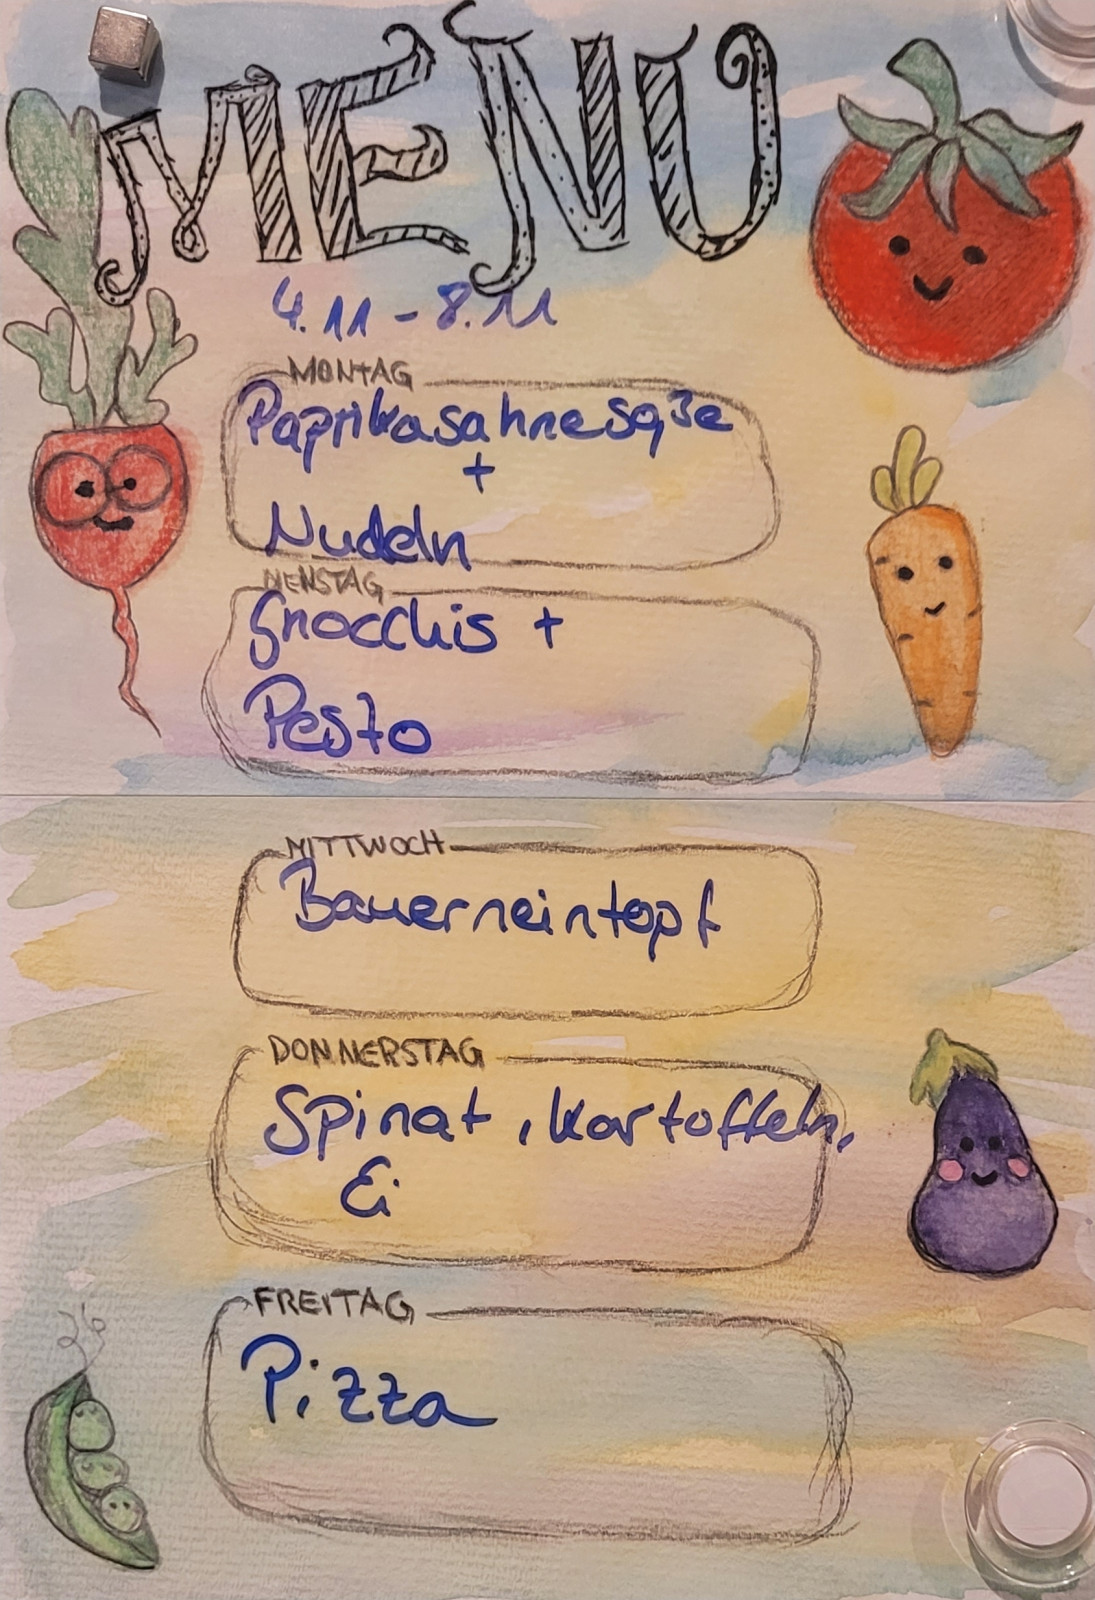 MENU
4.11 - 8.11
MONTAG
Paprikasahnesoße
+
Nudeln
DIENSTAG
Gnocchis +
Pesto
MITTWOCH
Bauerneintopf
DONNERSTAG
Spinat, Kartoffeln,
Ei
FREITAG
Pizza